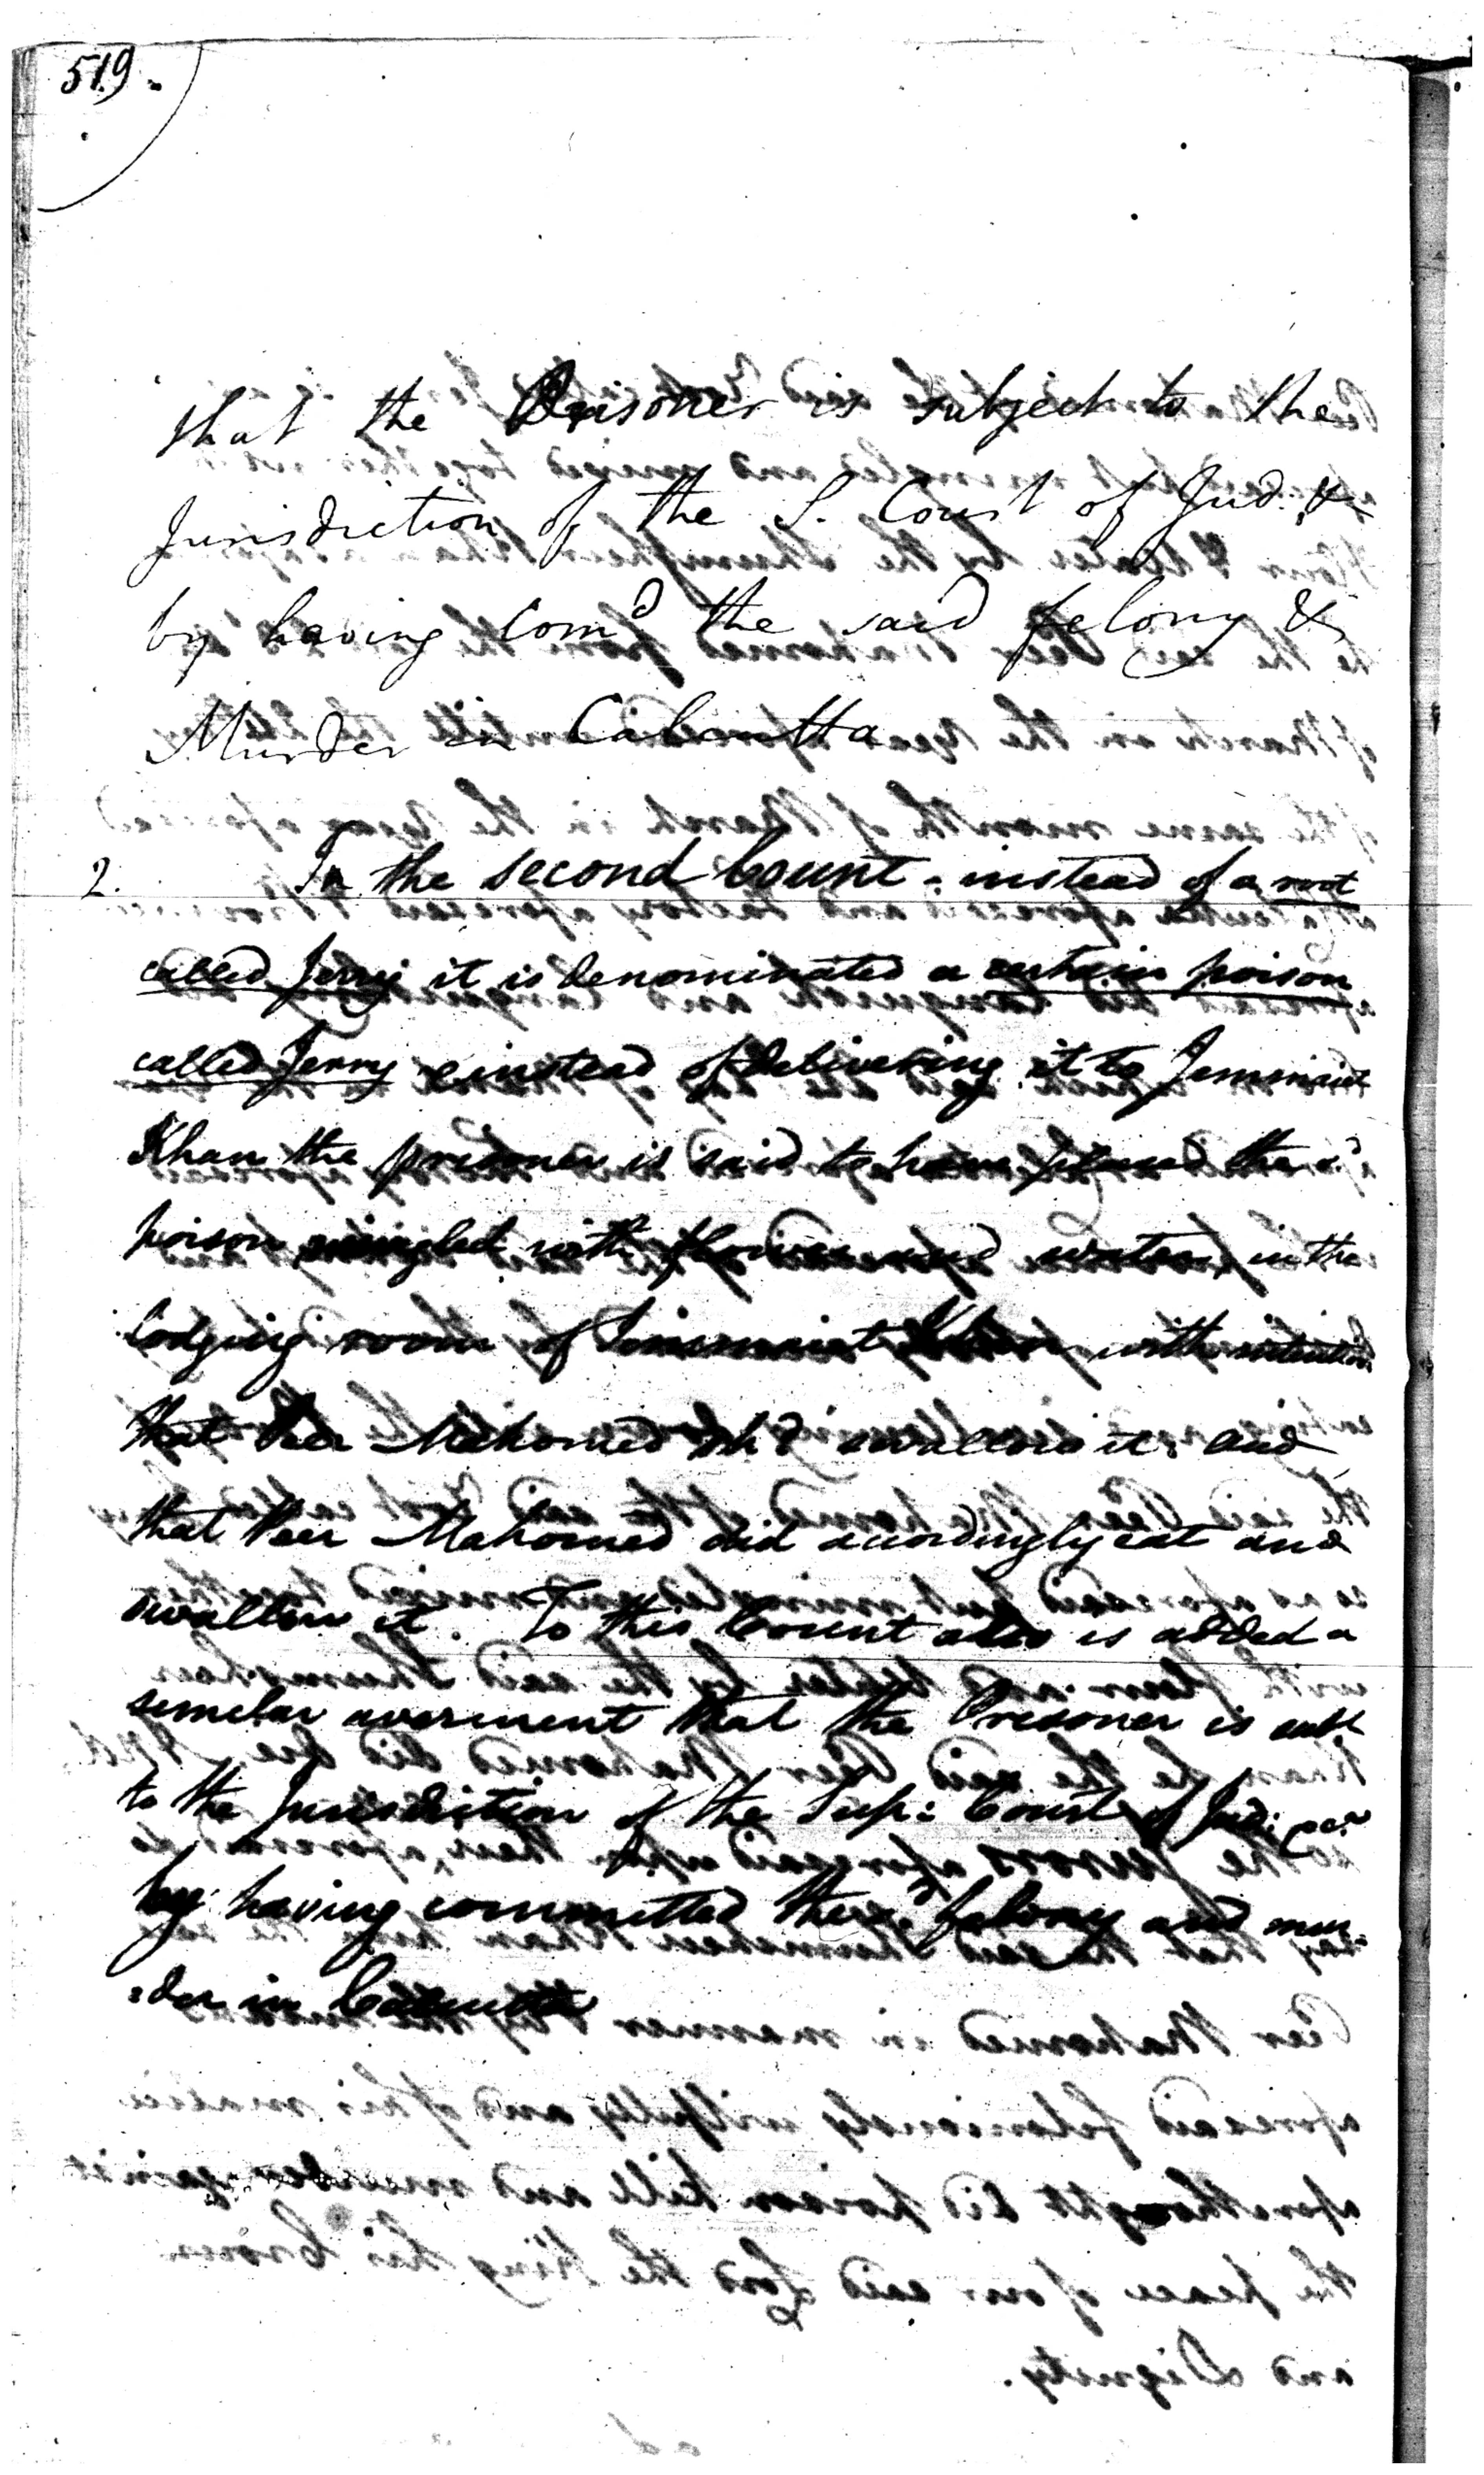 519.
that the Prisoner is subject to the
Jurisdiction of the S. Court of Jud: &c
by having Comd the said felony &
Murder in Calcutta
2. In the second Count - instead of a root
called Jerry it is denominated a certain poison
called Jerry & instead of delivering it to Jemmaiet
Khan the prisoner is said to have placed the sd
poison mingled with flower and water in the
lodging room of Jemmaiet Khan with intention
that Peer Mahomed shd swallow it. and
that Peer Mahomed did accordingly eat and
swallow it. To this Count also is added a
semelar averment that the Presoner is subt
to the Jurisdiction of the Sup: Court of Jud: &ca
by having committed the sd felony and mur:
:der in Calcutta